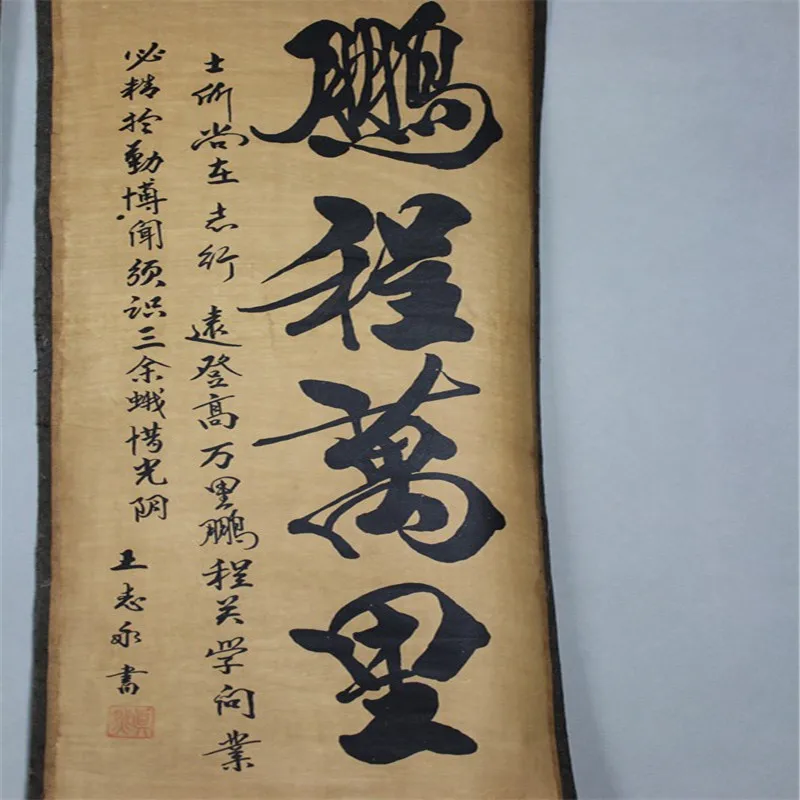 鹏程萬里
士所尚在志行遠登高万里鹏程关学问業
必精於勤博闻须识三余蛾惜光阴
王志永書